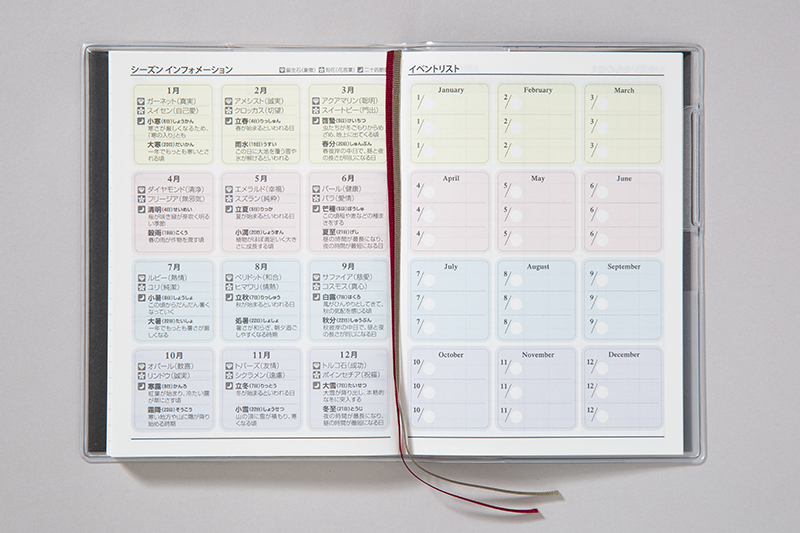 シーズン インフォメーション
誕生石(象徴) 和花(花言葉) 二十四節
1月
ガーネット(真実)
スイセン(自己愛)
小寒(6日)しょうかん
寒さが厳しくなるため、
「寒の入り」とも
大寒(20日)だいかん
一年でもっとも寒いとさ
れる頃
2月
アメシスト(誠実)
クロッカス(切望)
立春(4日)りっしゅん
春が始まるといわれる日
雨水(19日)うすい
この日に大地を覆う雪や
氷が解けるといわれる
3月
アクアマリン(聡明)
スイートピー(門出)
啓蟄(5日)けいちつ
虫たちが冬ごもりからめ
ざめ、地上に出てくる頃
春分(20日)しゅんぶん
春彼岸の中日で、昼と夜
の長さが同じになる日
4月
ダイヤモンド(清浄)
フリージア(無邪気)
清明(4日)せいめい
桜が咲き緑が芽吹く明る
い季節
穀雨(19日)こくう
春の雨が作物を潤す頃
5月
エメラルド(幸福)
スズラン(純粋)
立夏(5日)りっか
夏が始まるといわれる日
小満(20日)しょうまん
植物がほぼ満足いく大き
さに成長する頃
6月
パール(健康)
バラ(愛情)
芒種(5日)ぼうしゅ
この頃稲や麦などの種ま
きをする
夏至(21日)げし
昼の時間が最長になり、
夜の時間が最短になる日
7月
ルビー(熱情)
ユリ(純潔)
小暑(6日)しょうしょ
この頃からだんだん暑く
なっていく
大暑(22日)たいしょ
一年でもっとも暑さが厳し
くなる
8月
ペリドット(和合)
ヒマワリ(情熱)
立秋(7日)りっしゅう
秋が始まるといわれる日
処暑(22日)しょしょ
暑さが和らぎ、朝夕過ご
しやすくなる時期
9月
サファイア(慈愛)
コスモス(真心)
白露(7日)はくろ
風がひんやりとしてきて、
秋の気配を感じる頃
秋分(22日)しゅうぶん
秋彼岸の中日で、昼と夜
の長さが同じになる日
10月
オパール(歓喜)
リンドウ(誠実)
寒露(8日)かんろ
紅葉が始まり、冷たい露
が草にさす頃
霜降(23日)そうこう
寒い地方や山に霜が降り
始める時期
11月
トパーズ(友情)
シクラメン(遠慮)
立冬(7日)りっとう
冬が始まるといわれる日
小雪(22日)しょうせつ
山の頂に雪が積もり、寒
くなる頃
12月
トルコ石(成功)
ポインセチア(祝福)
大雪(7日)たいせつ
大雪が降り出し、本格的
な冬に突入する
冬至(21日)とうじ
夜の時間が最長になり、
昼の時間が最短になる日
イベントリスト
January
1/
1/
1/
February
2/
2/
2/
March
3/
3/
3/
April
4/
4/
4/
May
5/
5/
5/
June
6/
6/
6/
July
7/
7/
7/
August
8/
8/
8/
September
9/
9/
9/
October
10/
10/
10/
November
11/
11/
11/
December
12/
12/
12/